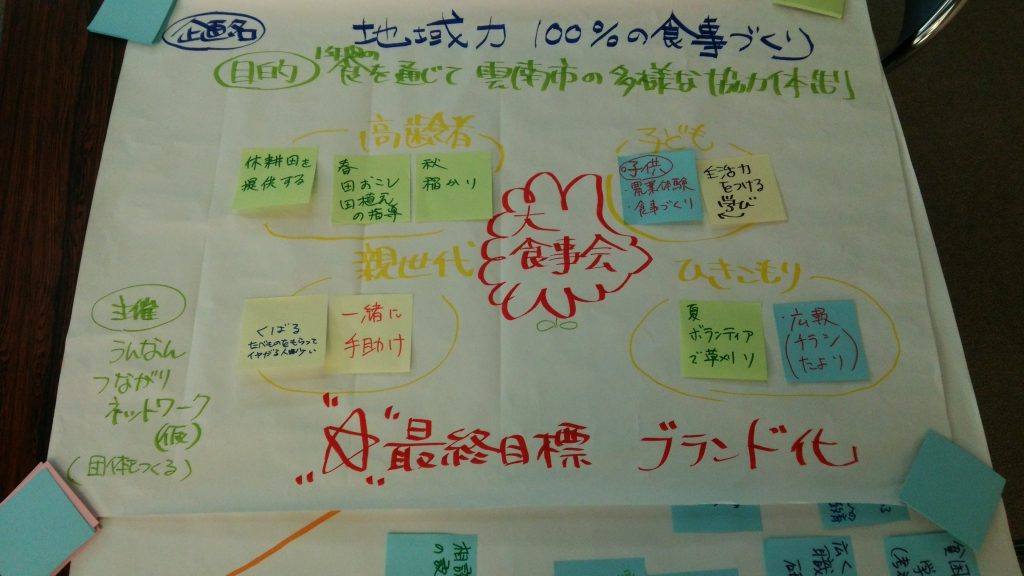 企画名 地域力 100%の食事づくり
目的 食を通じて 雲南市の多様な協力体制
高齢者
休耕田を
提供する
春
田おこし
田植えの指導
秋
稲かり
子ども
子供
・農業体験
・食事づくり
生活力
をつける
学び
大
食事会
親世代
くばる
たべものをもらって
イヤがる人は少い
一緒に
手助け
ひきこもり
夏
ボランティア
で草刈り
・広報
(チラシ
たより)
主催
うんなん
つながり
ネットワーク
(仮)
(団体をつくる)
"☆" 最終目標 ブランド化
相談
の
広く
職
貧困
学